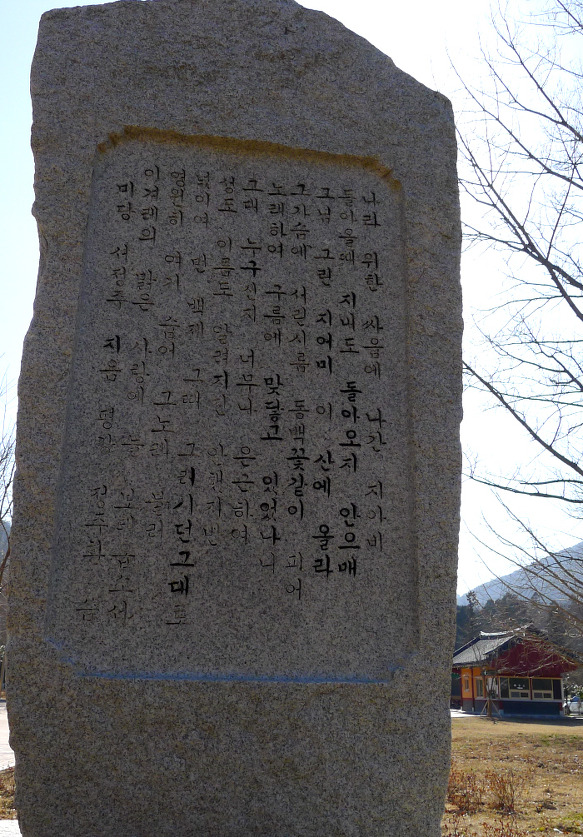 나라 위한 싸움에 나간 지아비
돌아올때 지내도 돌아오지 안으매
그님 그린 지어미 이 산에 올라
그가슴에 서린시름 동백꽃같이 피어
노래하여 구름에 맞닿고 있었나니
그대 누구신지 너무나 은근하여
성도 이름도 알려지진 안했지만
넋이여 먼 백제 그때 그러시던그대로
영원히 여기 숨어 그노래 불러
이겨레의 맑은 사랑에 늘
미당 서정주 지음 씀